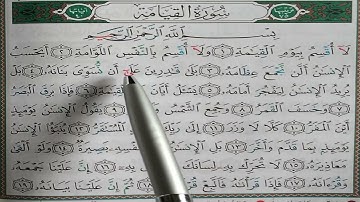 سُورَةُ القِيَامَةِ
بِسْمِ ٱللَّهِ ٱلرَّحْمَٰنِ ٱلرَّحِيمِ
لَآ أُقْسِمُ بِيَوْمِ ٱلْقِيَٰمَةِ ١ وَلَآ أُقْسِمُ بِٱلنَّفْسِ ٱللَّوَّامَةِ ٢ أَيَحْسَبُ
ٱلْإِنسَٰنُ أَلَّن نَّجْمَعَ عِظَامَهُۥ ٣ بَلَىٰ قَٰدِرِينَ عَلَىٰٓ أَن نُّسَوِّىَ بَنَانَهُۥ ٤ بَلْ
يُرِيدُ ٱلْإِنسَٰنُ لِيَفْجُرَ أَمَامَهُۥ ٥ يَسْـَٔلُ أَيَّانَ يَوْمُ ٱلْقِيَٰمَةِ ٦ فَإِذَا بَرِقَ ٱلْبَصَرُ
٧ وَخَسَفَ ٱلْقَمَرُ ٨ وَجُمِعَ ٱلشَّمْسُ وَٱلْقَمَرُ ٩ يَقُولُ ٱلْإِنسَٰنُ يَوْمَئِذٍ
أَيْنَ ٱلْمَفَرُّ ١٠ كَلَّا لَا وَزَرَ ١١ إِلَىٰ رَبِّكَ ٱلْمُسْتَقَرُّ ١٢ يُنَبَّؤُا۟ ٱلْإِنسَٰنُ
يَوْمَئِذٍۭ بِمَا قَدَّمَ وَأَخَّرَ ١٣ بَلِ ٱلْإِنسَٰنُ نَفْسِهِۦ بَصِيرَةٌ ١٤ وَلَوْ أَلْقَىٰ
مَعَاذِيرَهُۥ ١٥ لَا تُحَرِّكْ بِهِۦ لِسَانَكَ بِهِۦٓ ١٦ إِنَّ عَلَيْنَا جَمْعَهُۥ
وَقُرْءَانَهُۥ ١٧ فَإِذَا قَرَأْنَٰهُ فَٱتَّبِعْ قُرْءَانَهُۥ ١٨ ثُمَّ إِنَّ عَلَيْنَا بَيَانَهُۥ ١٩